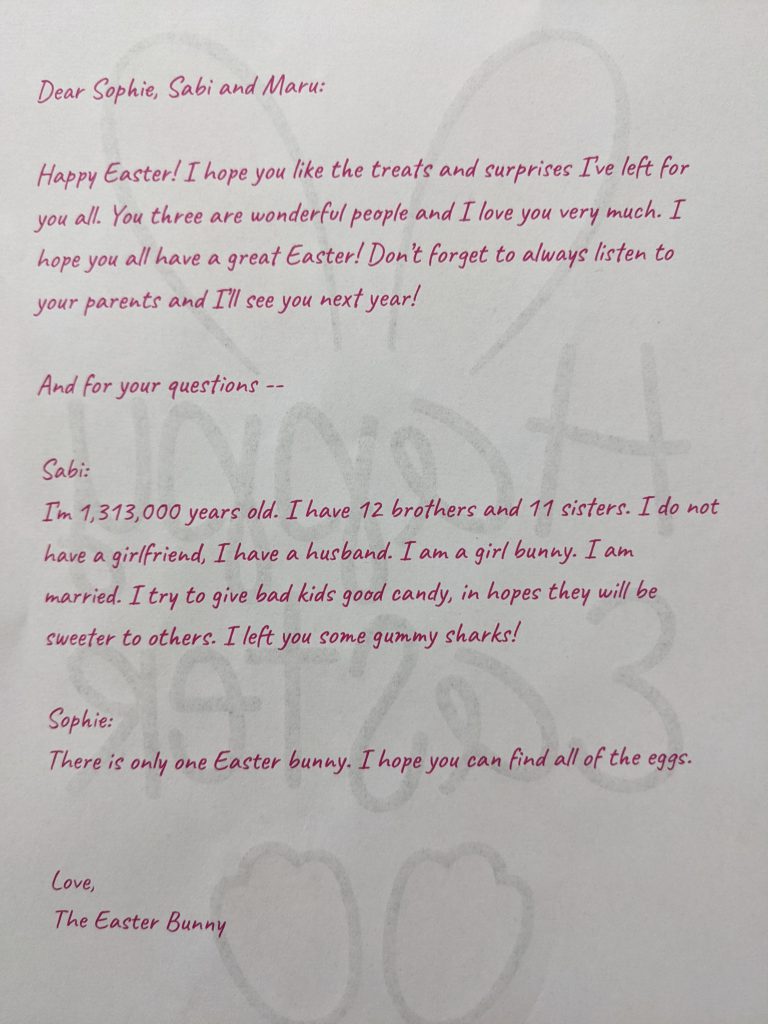 Dear Sophie, Sabi and Maru:
Happy Easter! I hope you like the treats and surprises I've left for
you all. You three are wonderful people and I love you very much. I
hope you all have a great Easter! Don't forget to always listen to
your parents and I'll see you next year!
And for your questions --
Sabi:
I'm 1,313,000 years old. I have 12 brothers and 11 sisters. I do not
have a girlfriend, I have a husband. I am a girl bunny. I am
married. I try to give bad kids good candy, in hopes they will be
sweeter to others. I left you some gummy sharks!
Sophie:
There is only one Easter bunny. I hope you can find all of the eggs.
Love,
The Easter Bunny
Happy
Easter